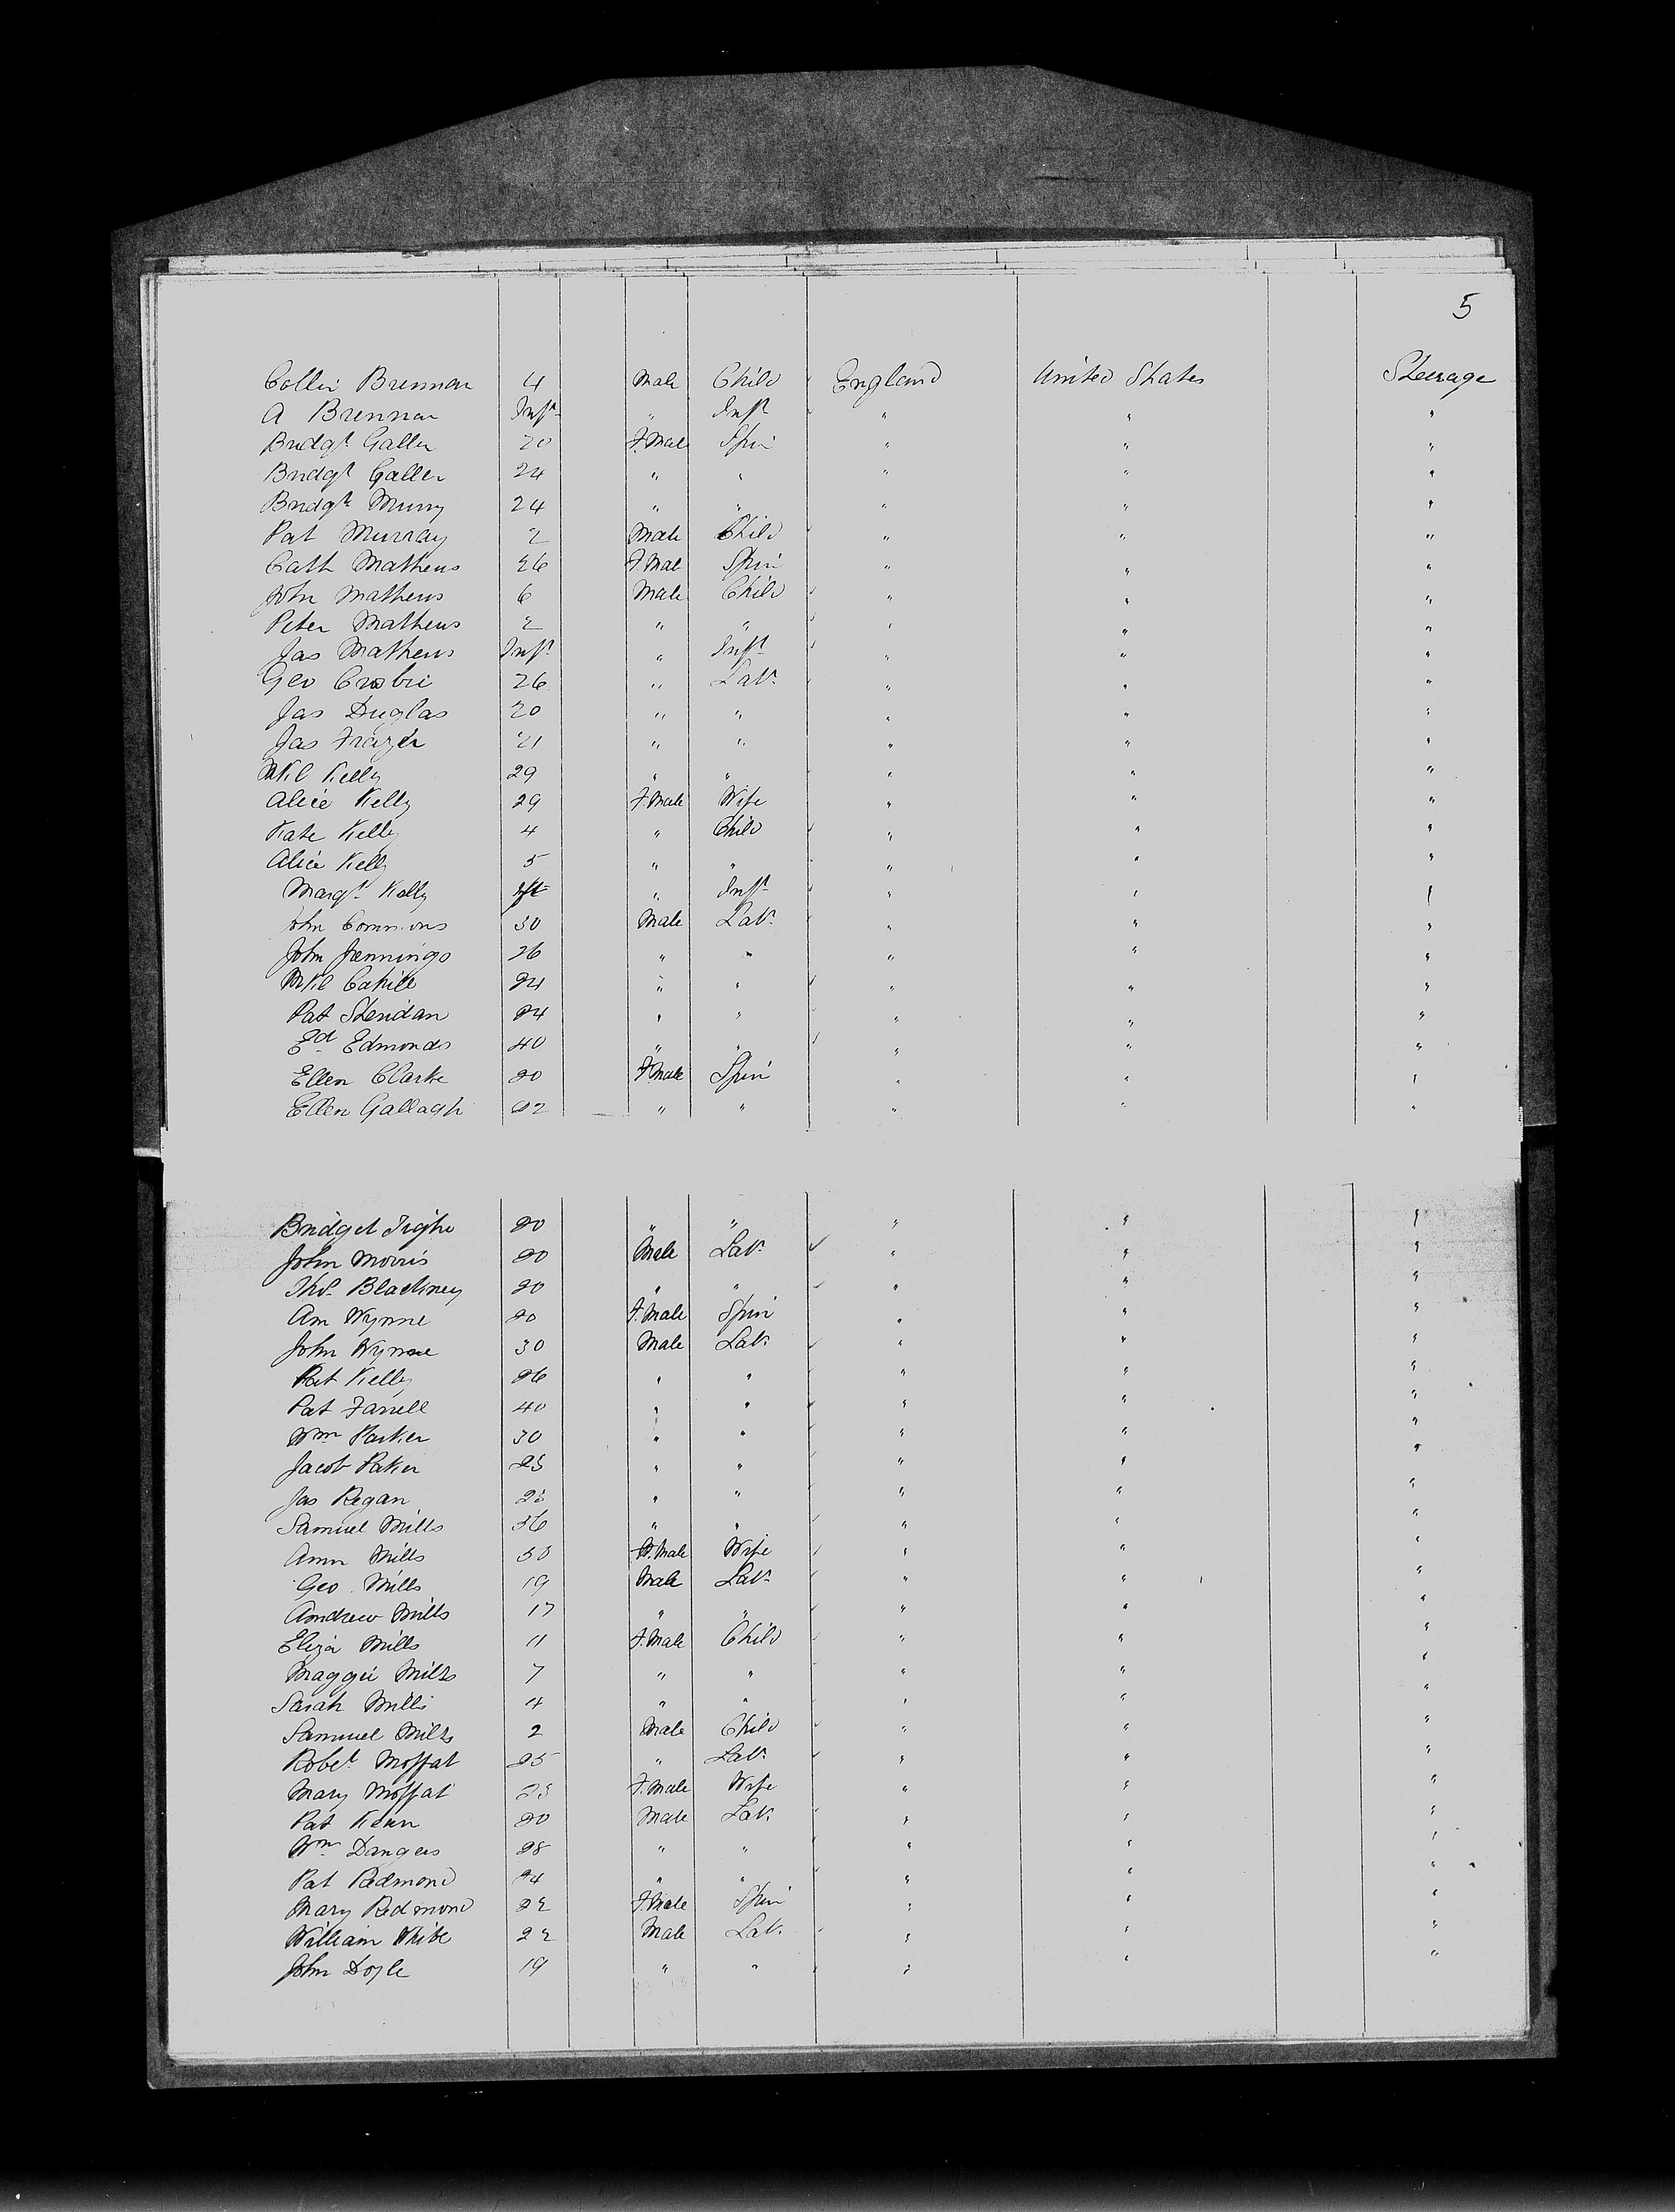 5
Collin Brennan 4 Male Child England United States Steerage
A Brennan Inft " Inft " " "
Bridgt Gallen 20 F.Male Spin " " "
Bridgt Gallen 24 " " " " "
Bridgt Murry 24 " " " " "
Pat Murray 2 Male Child " " "
Cath Mathews 26 F.Mal Spin " " "
John Mathews 6 Male Child " " "
Peter Mathews 2 " " " " "
Jas Mathews Inft " Inft " " "
Geo Crosbie 26 " Labr " " "
Jas Duglas 20 " " " " "
Jas Frazer 21 " " " " "
Mkl Kelly 29 " " " " "
Alice Kelly 29 F.Male Wife " " "
Kate Kelly 4 " Child " " "
Alice Kelly 5 " " " " "
Margt Kelly Inft " Inft " " "
John Commons 30 Male Labr " " "
John Jennings 26 " " " " "
Mkl Cahill 24 " " " " "
Pat Sheridan 24 " " " " "
Ed Edmonds 40 " " " " "
Ellen Clarke 20 F.Male Spin " " "
Ellen Gallagh 22 " " " " "
Bridget Tighe 20 " " " " "
John Morris 20 Male Labr " " "
Thos Blackney 20 " " " " "
Ann Wynne 20 F.Male Spin " " "
John Wynne 30 Male Labr " " "
Pat Kelly 26 " " " " "
Pat Farrell 40 " " " " "
Wm Parker 30 " " " " "
Jacob Paker 23 " " " " "
Jas Regan 23 " " " " "
Samuel Mills 36 " " " " "
Ann Mills 33 F.Male Wife " " "
Geo Mills 19 Male Labr " " "
Andrew Mills 17 " " " " "
Eliza Mills 11 F.Male Child " " "
Maggie Mills 7 " " " " "
Sarah Mills 4 " " " " "
Samuel Mills 2 Male Child " " "
Robet Moffat 25 " Labr " " "
Mary Moffat 23 F.Male Wife " " "
Pat Kenn 20 Male Labr " " "
Wm Dangers 28 " " " " "
Pat Redmond 24 " " " " "
Mary Redmond 22 F.Male Spin " " "
William White 22 Male Labr " " "
John Doyle 19 " " " " "